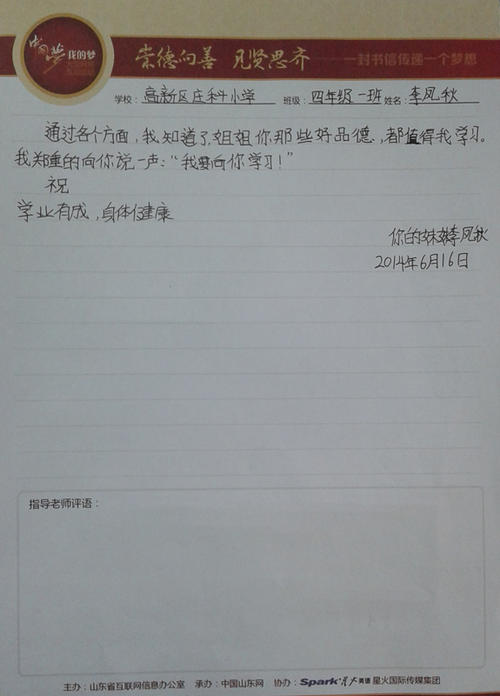 中国梦 我的梦
崇德向善 见贤思齐 一封书信传递一个梦想
学校：高新区庄科小学 班级：四年级一班 姓名：李凤秋
通过各个方面，我知道了姐姐你那些好品德，都值得我学习。
我郑重的向你说一声：“我要向你学习！”
祝
学业有成，身体健康
你的妹妹李凤秋
2014年6月16日
指导老师评语：
主办：山东省互联网信息办公室 承办：中国山东网 协办：Spark 星火英语 星火国际传媒集团